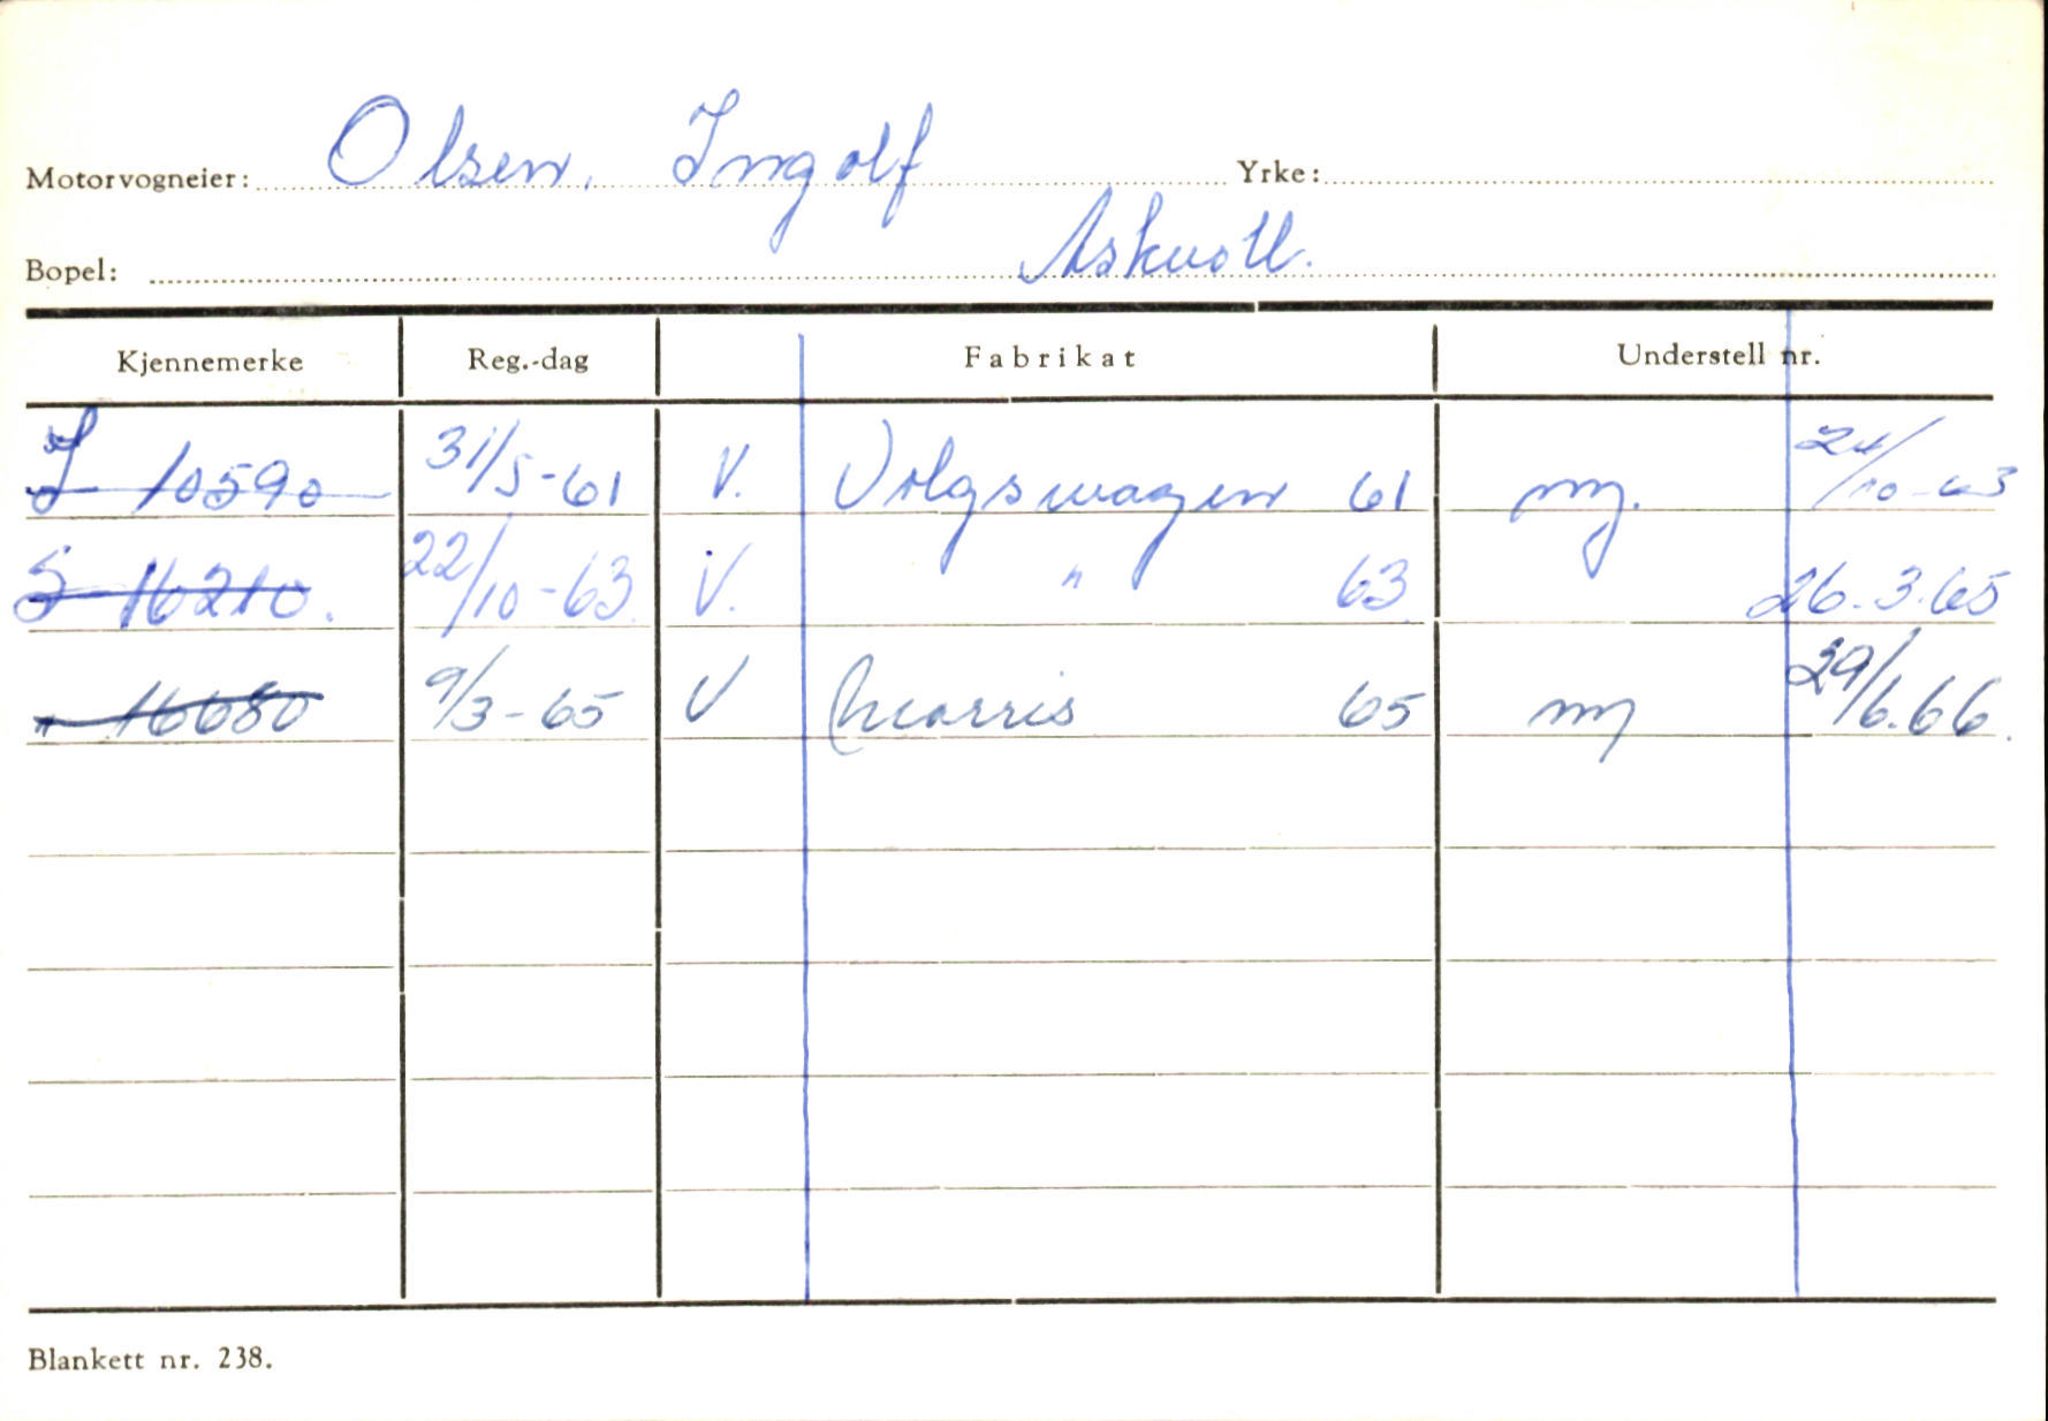 Motorvogneier: Olsen, Ingolf Yrke:
Bopel: Askvoll.
Kjennemerke Reg.-dag Fabrikat Understell nr.
S 10590 31/5-61 V. Volgswagen 61 ny. 24/10-63
S 16210. 22/10-63. V. " 63 26.3.65
" 16680 9/3-65 V Morris 65 ny 29/6.66.
Blankett nr. 238.